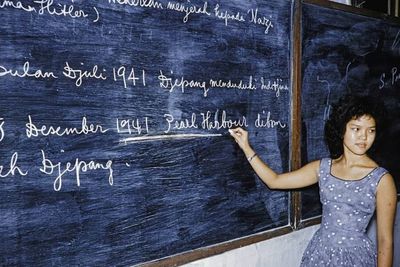 man Hitler)
menjerah kepada Nazi
Bulan Djuli 1941 Djepang menduduki Indotjina
Desember 1941 Pearl Harbour dibom
eh Djepang.
S